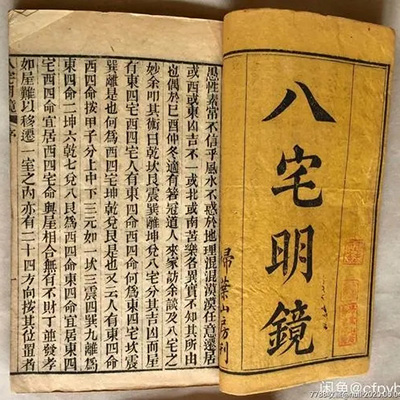 八宅明鏡
掃葉山房刊
愚性素常不信乎風水不惑於地理混混漠漠任意遷居
或西或東凶吉不一或北或南苦葉各異實不知其所
也偶於己酉仲冬適有著冠道人來家訪余談及八宅之
妙余叩其術曰乾坎艮震巽離坤兌八宅分其吉凶而居
有東四宅西四宅人有東四命西四命何為東四宅坎震
巽離是也何為西四宅坤乾兌艮是也又云人有東四命
西四命按甲子分上中下三元如一坎三震四巽九離為
東四命二坤六乾七兌八艮為西四命東四命宜居東四
宅西四命宜居西四宅命與屋相合無有不利財丁並發
如屋難以移遷一室之內亦有二十四方向按其位置者
八宅明鏡 序
闲鱼@cfpvb